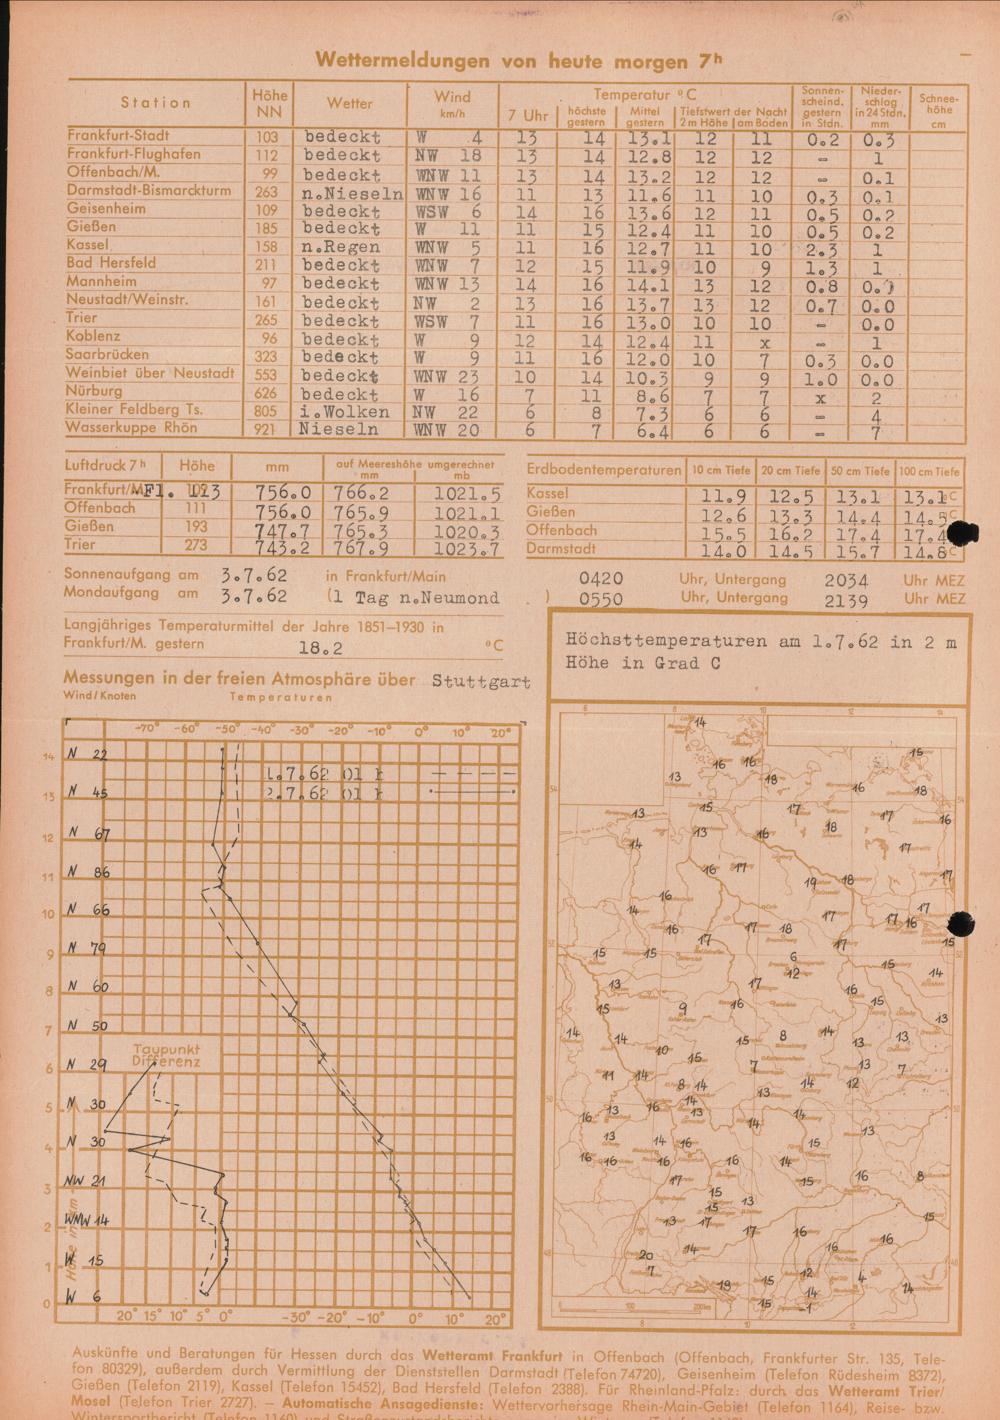 Wettermeldungen von heute morgen 7h
Station Höhe NN Wetter Wind km/h Temperatur °C Sonnen-scheind. gestern in Stdn. Nieder-schlag in 24 Stdn. mm Schnee-höhe cm
7 Uhr höchste gestern Mittel gestern Tiefstwert der Nacht 2 m Höhe am Boden
Frankfurt-Stadt 103 bedeckt W 4 13 14 13.1 12 11 0.2 0.3
Frankfurt-Flughafen 112 bedeckt NW 18 13 14 12.8 12 12 - 1
Offenbach/M. 99 bedeckt WNW 11 13 14 13.2 12 12 - 0.1
Darmstadt-Bismarckturm 263 n.Nieseln WNW 16 11 13 11.6 11 10 0.3 0.1
Geisenheim 109 bedeckt WSW 6 14 16 13.6 12 11 0.5 0.2
Gießen 185 bedeckt W 11 11 15 12.4 11 10 0.5 0.2
Kassel 158 n.Regen WNW 5 11 16 12.7 11 10 2.3 1
Bad Hersfeld 211 bedeckt WNW 7 12 15 11.9 10 9 1.3 1
Mannheim 97 bedeckt WNW 13 14 16 14.1 13 12 0.8
Neustadt/Weinstr. 161 bedeckt NW 2 13 16 13.7 13 12 0.7 0.0
Trier 265 bedeckt WSW 7 11 16 13.0 10 10 - 0.0
Koblenz 96 bedeckt W 9 12 14 12.4 11 x - 1
Saarbrücken 323 bedeckt W 9 11 16 12.0 10 7 0.3 0.0
Weinbiet über Neustadt 553 bedeckt WNW 23 10 14 10.3 9 9 1.0 0.0
Nürburg 626 bedeckt W 16 7 11 8.6 7 7 x 2
Kleiner Feldberg Ts. 805 i.Wolken NW 22 6 8 7.3 6 6 - 4
Wasserkuppe Rhön 921 Nieseln WNW 20 6 7 6.4 6 6 - 7
Luftdruck 7h Höhe mm auf Meereshöhe umgerechnet mm mb
Frankfurt/M.-Fl. 113 756.0 766.2 1021.5
Offenbach 111 756.0 765.9 1021.1
Gießen 193 747.7 765.3 1020.3
Trier 273 743.2 767.9 1023.7
Erdbodentemperaturen 10 cm Tiefe 20 cm Tiefe 50 cm Tiefe 100 cm Tiefe
Kassel 11.9 12.5 13.1 13.1 °C
Gießen 12.6 13.3 14.4 14.5 °C
Offenbach 15.5 16.2 17.4 17.4
Darmstadt 14.0 14.5 15.7 14.8 °C
Sonnenaufgang am 3.7.62 in Frankfurt/Main 0420 Uhr, Untergang 2034 Uhr MEZ
Mondaufgang am 3.7.62 (1 Tag n.Neumond ) 0550 Uhr, Untergang 2139 Uhr MEZ
Langjähriges Temperaturmittel der Jahre 1851–1930 in
Frankfurt/M. gestern 18.2 °C
Messungen in der freien Atmosphäre über Stuttgart
Wind/Knoten Temperaturen
-70° -60° -50° -40° -30° -20° -10° 0° 10° 20°
14 N 22
1.7.62 01 h
13 N 45
2.7.62 01 h
12 N 67
11 N 86
10 N 66
9 N 79
8 N 60
7 N 50
Taupunkt
Differenz
6 N 29
5 N 30
4 N 30
3 NW 21
2 WNW 14
1 W 15
0 W 6
Höhe in km
20° 15° 10° 5° 0° -30° -20° -10° 0° 10° 20°
Höchsttemperaturen am 1.7.62 in 2 m
Höhe in Grad C
6 8 10 12 14
14
15
13 16 16 18 16 18
13 15 17 17 16
14 13 16 18 17
16 17 19 18 17
14 16 17 17 16 17
16 17 17 18 17 15
15 15 6 12 15 14
13 17 16 15
15 9 16 13
14 14 10 15 15 8 14 13 13
11 14 8 14 7 13 14 12 7
16 13 16 14 13 14 14
13 14 16 15
16 16 16 16 14 16 8
17 15 13 15
13 15 17 17 16 15
20 14 16 16
7 19 15 12 4 14
15 14 -1
100 200km
Auskünfte und Beratungen für Hessen durch das Wetteramt Frankfurt in Offenbach (Offenbach, Frankfurter Str. 135, Tele-
fon 80329), außerdem durch Vermittlung der Dienststellen Darmstadt (Telefon 74720), Geisenheim (Telefon Rüdesheim 8372),
Gießen (Telefon 2119), Kassel (Telefon 15452), Bad Hersfeld (Telefon 2388). Für Rheinland-Pfalz: durch das Wetteramt Trier/
Mosel (Telefon Trier 2727). – Automatische Ansagedienste: Wettervorhersage Rhein-Main-Gebiet (Telefon 1164), Reise- bzw.
Wintersportbericht (Telefon 1160) und